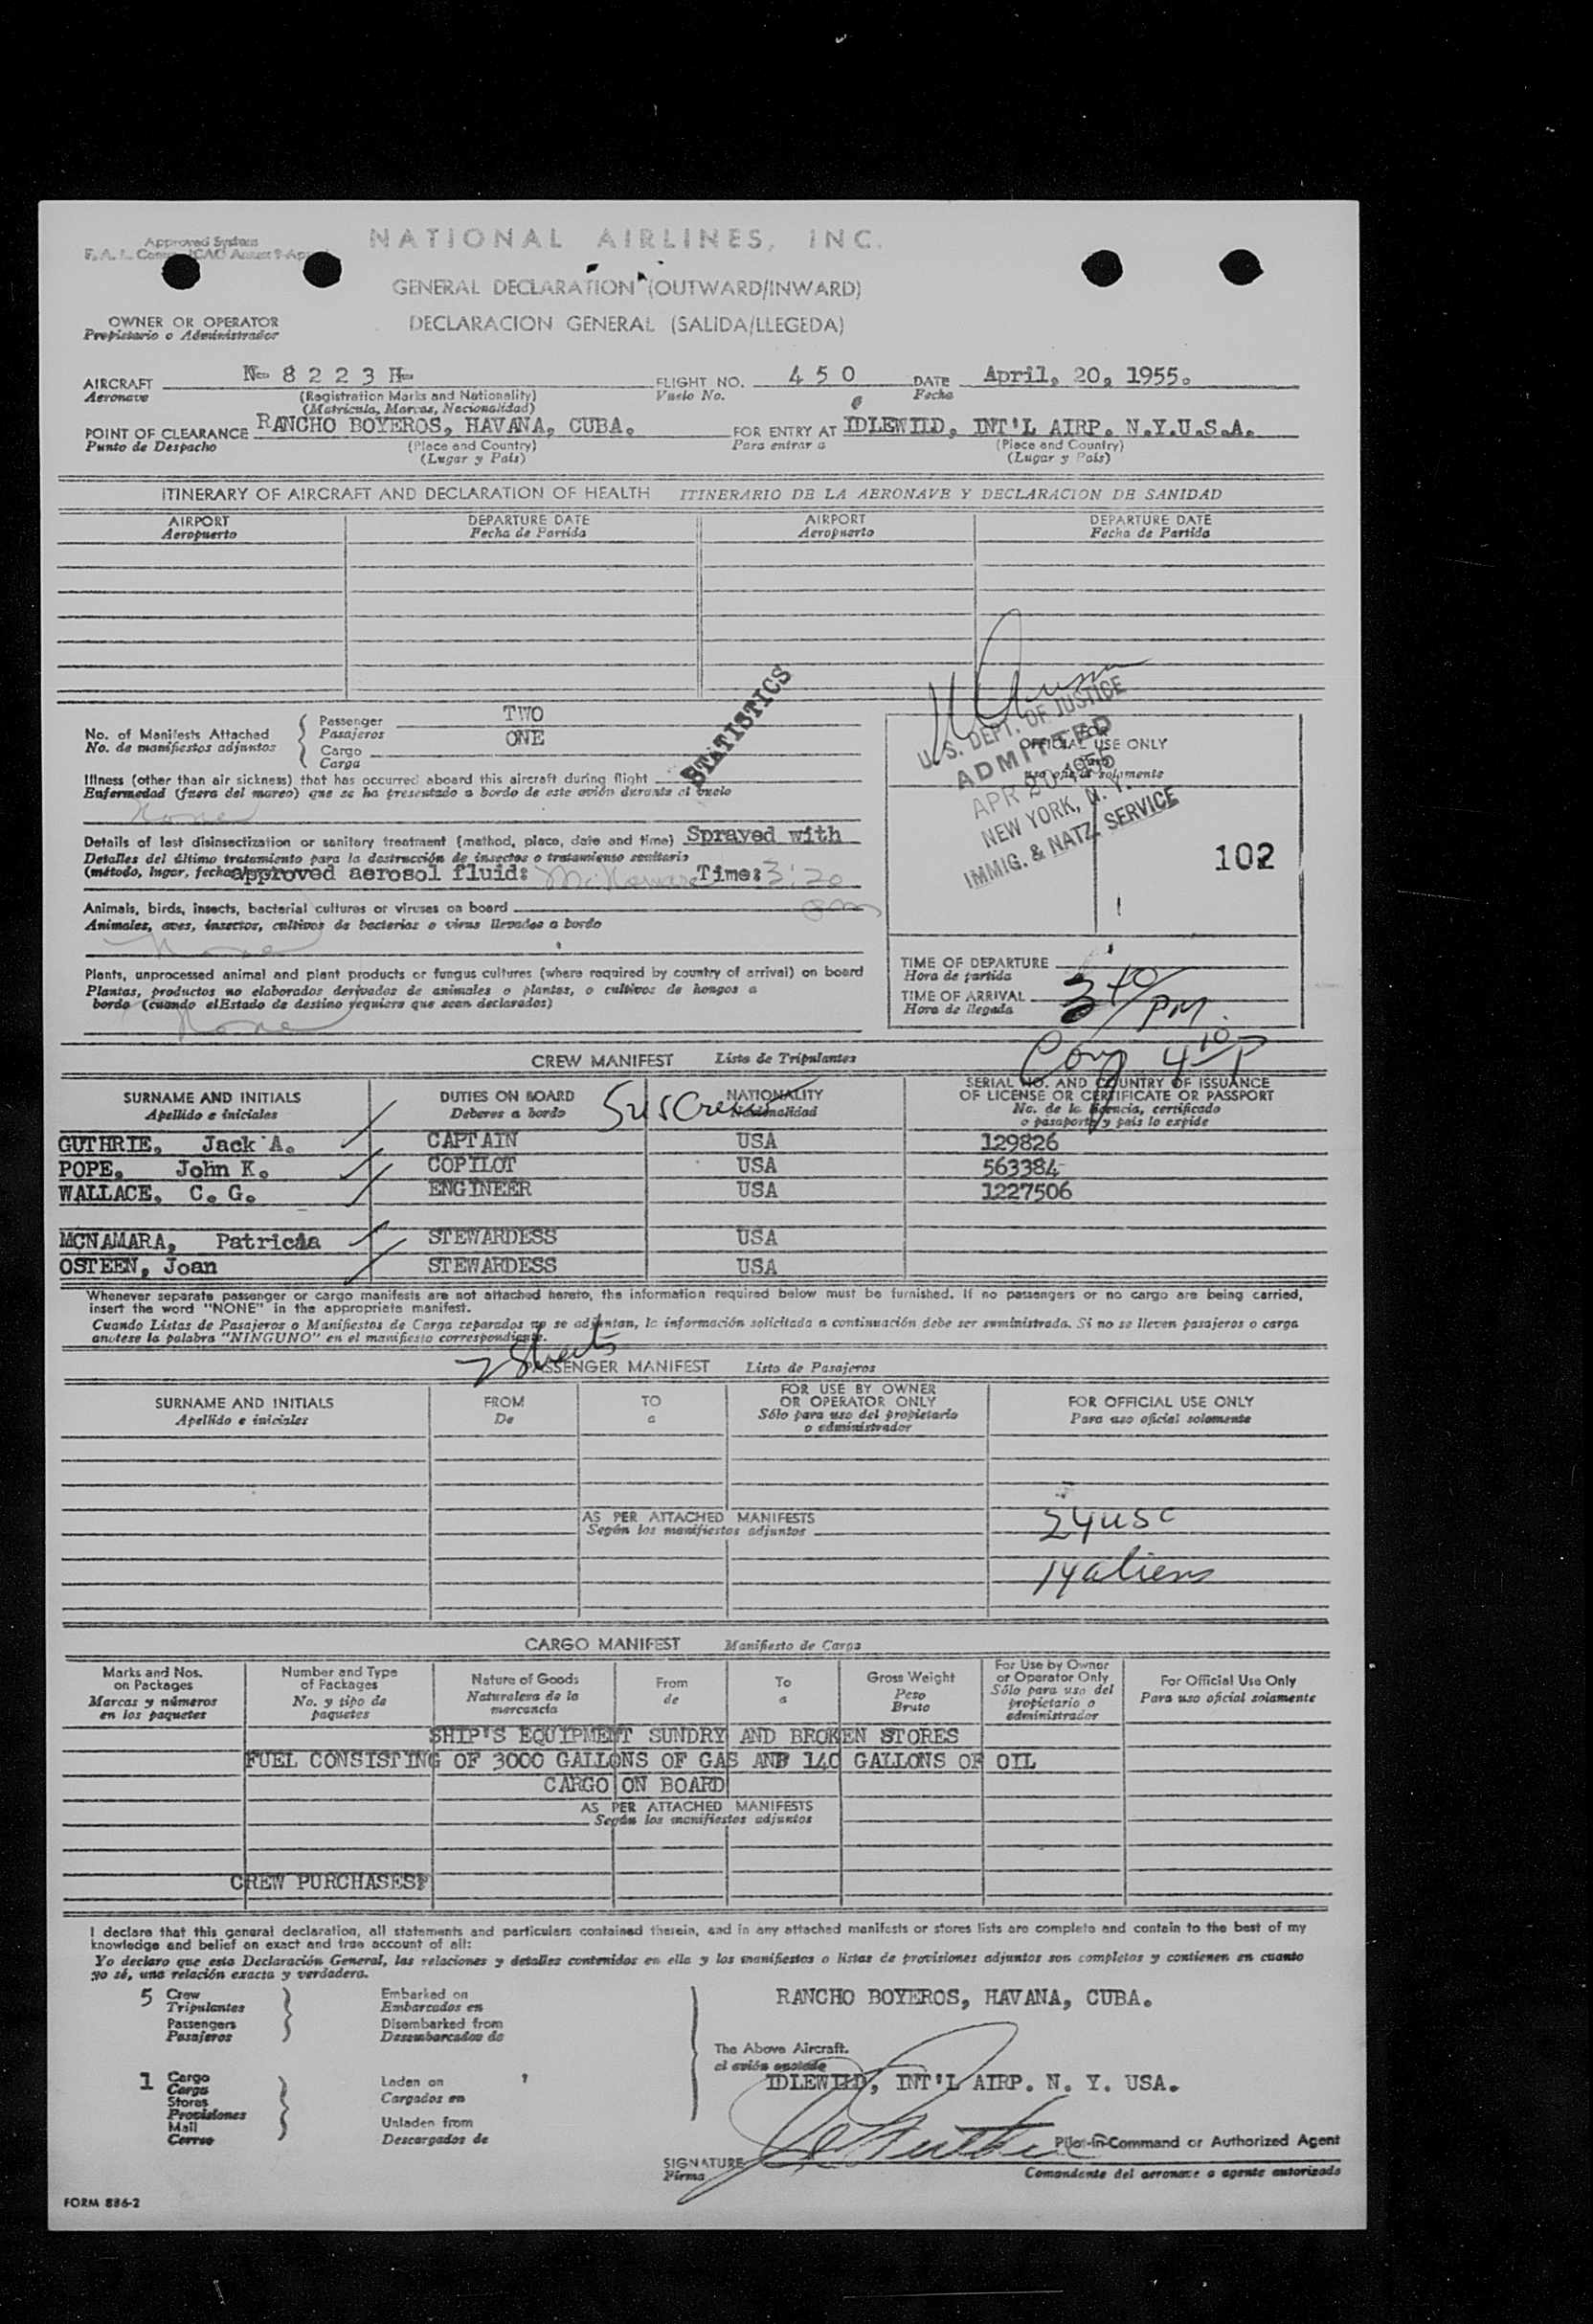 Approved System
NATIONAL AIRLINES, INC.
GENERAL DECLARATION (OUTWARD/INWARD)
OWNER OR OPERATOR
Propietario o Administrador
DECLARACION GENERAL (SALIDA/LLEGEDA)
AIRCRAFT N- 8 2 2 3 H- FLIGHT NO. 4 5 0 DATE April, 20, 1955.
Aeronave (Registration Marks and Nationality) Vuelo No. Fecha
(Matricula, Marcas, Nacionalidad)
POINT OF CLEARANCE RANCHO BOYEROS, HAVANA, CUBA. FOR ENTRY AT IDLEWILD, INT'L AIRP. N.Y.U.S.A.
Punto de Despacho (Place and Country) Para entrar a (Place and Country)
(Lugar y País) (Lugar y País)
ITINERARY OF AIRCRAFT AND DECLARATION OF HEALTH ITINERARIO DE LA AERONAVE Y DECLARACION DE SANIDAD
AIRPORT DEPARTURE DATE AIRPORT DEPARTURE DATE
Aeropuerto Fecha de Partida Aeropuerto Fecha de Partida
STATISTICS
No. of Manifests Attached
No. de manifiestos adjuntos
Passenger TWO
Pasajeros
Cargo ONE
Carga
Illness (other than air sickness) that has occurred aboard this aircraft during flight
Enfermedad (fuera del mareo) que se ha presentado a bordo de este avión durante el vuelo
None
Details of last disinsectization or sanitary treatment (method, place, date and time) Sprayed with
Detalles del último tratamiento para la destrucción de insectos o tratamiento sanitario
(método, lugar, fecha approved aerosol fluid: McNamara Time: 3:20
pm
Animals, birds, insects, bacterial cultures or viruses on board
Animales, aves, insectos, cultivos de bacterias o virus llevados a bordo
None
Plants, unprocessed animal and plant products or fungus cultures (where required by country of arrival) on board
Plantas, productos no elaborados derivados de animales o plantas, o cultivos de hongos a
bordo (cuando el Estado de destino requiera que sean declarados)
None
FOR
OFFICIAL USE ONLY
Para
uso oficial solamente
U. S. DEPT. OF JUSTICE
ADMITTED
APR 20 1955
NEW YORK, N. Y.
IMMIG. & NATZ. SERVICE
102
TIME OF DEPARTURE
Hora de partida
TIME OF ARRIVAL 3 40/PM.
Hora de llegada
4 10 P
CREW MANIFEST Lista de Tripulantes
SURNAME AND INITIALS DUTIES ON BOARD NATIONALITY SERIAL NO. AND COUNTRY OF ISSUANCE
OF LICENSE OR CERTIFICATE OR PASSPORT
Apellido e iniciales Deberes a bordo Nacionalidad No. de la licencia, certificado
o pasaporte y país lo expide
5 USCrew
GUTHRIE, Jack A. CAPTAIN USA 129826
POPE, John K. COPILOT USA 563384
WALLACE, C. G. ENGINEER USA 1227506
MCNAMARA, Patricia STEWARDESS USA
OSTEEN, Joan STEWARDESS USA
Whenever separate passenger or cargo manifests are not attached hereto, the information required below must be furnished. If no passengers or no cargo are being carried,
insert the word "NONE" in the appropriate manifest.
Cuando Listas de Pasajeros o Manifiestos de Carga separados no se adjuntan, la información solicitada a continuación debe ser suministrada. Si no se lleven pasajeros o carga
anotese la palabra "NINGUNO" en el manifiesto correspondiente.
2 Sheets
PASSENGER MANIFEST Lista de Pasajeros
SURNAME AND INITIALS FROM TO FOR USE BY OWNER
OR OPERATOR ONLY FOR OFFICIAL USE ONLY
Apellido e iniciales De a Sólo para uso del propietario
o administrador Para uso oficial solamente
AS PER ATTACHED MANIFESTS
Según los manifiestos adjuntos
24 USC
14 aliens
CARGO MANIFEST Manifiesto de Carga
Marks and Nos.
on Packages
Marcas y números
en los paquetes
Number and Type
of Packages
No. y tipo de
paquetes
Nature of Goods
Naturaleza de la
mercancia
From
de
To
a
Gross Weight
Peso
Bruto
For Use by Owner
or Operator Only
Sólo para uso del
propietario o
administrador
For Official Use Only
Para uso oficial solamente
SHIP'S EQUIPMENT SUNDRY AND BROKEN STORES
FUEL CONSISTING OF 3000 GALLONS OF GAS AND 140 GALLONS OF OIL
CARGO ON BOARD
AS PER ATTACHED MANIFESTS
Según los manifiestos adjuntos
CREW PURCHASES:
I declare that this general declaration, all statements and particulars contained therein, and in any attached manifests or stores lists are complete and contain to the best of my
knowledge and belief an exact and true account of all:
Yo declaro que esta Declaración General, las relaciones y detalles contenidos en ella y los manifiestos o listas de provisiones adjuntos son completos y contienen en cuanto
yo sé, una relación exacta y verdadera.
5 Crew
Tripulantes
Passengers
Pasajeros
Embarked on
Embarcados en
Disembarked from
Desembarcados de
RANCHO BOYEROS, HAVANA, CUBA.
The Above Aircraft.
el avión anotado
1 Cargo
Carga
Stores
Provisiones
Mail
Correo
Laden on
Cargados en
Unladen from
Descargados de
IDLEWILD, INT'L AIRP. N. Y. USA.
Pilot-in-Command or Authorized Agent
SIGNATURE
Firma
Comandante del aeronave o agente autorizado
FORM 886-2